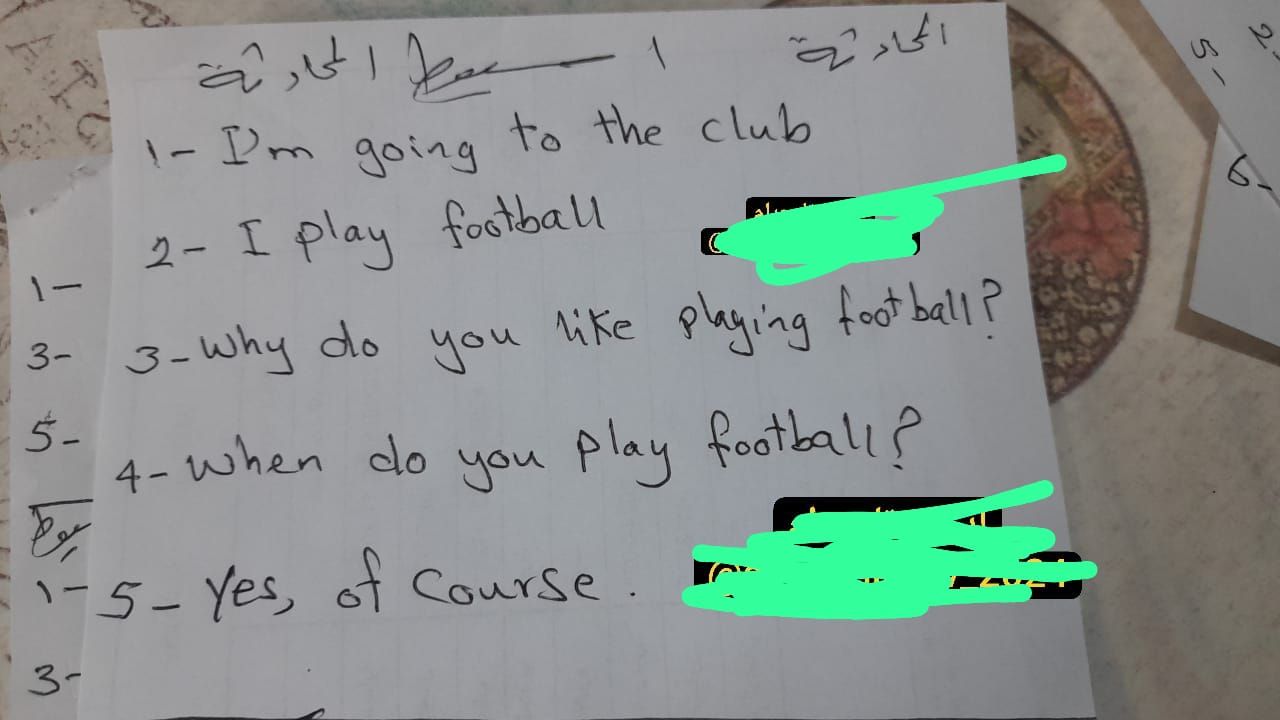 المحادثة ١ المحادثة
1- I'm going to the club
2- I play football
3- Why do you like playing football?
4- When do you play football?
5- Yes, of Course.
1-
3-
5-
1-
3-
2-
5-
6-
2024